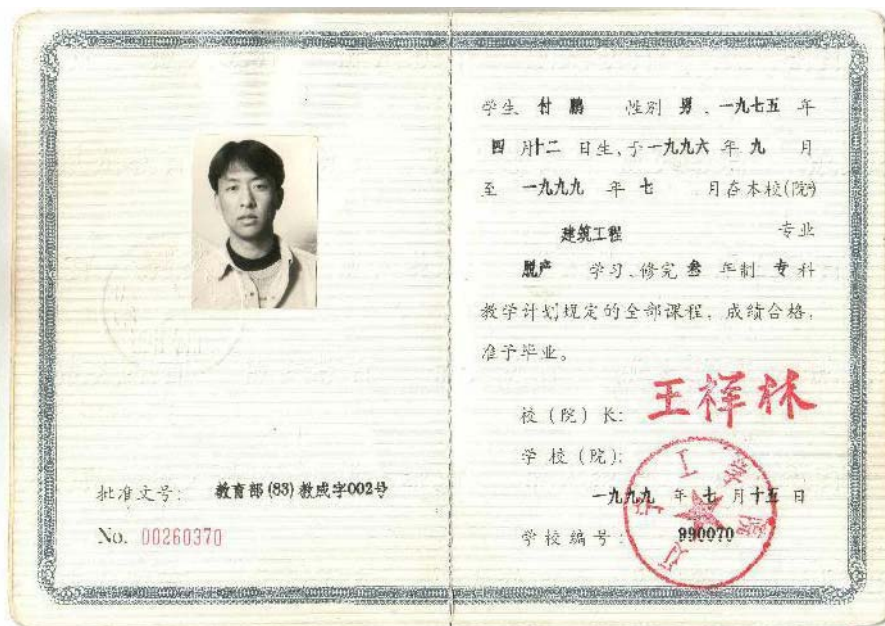 批准文号： 教育部(83)教成字002号
No. 00260370
学生 付鹏 性别 男、一九七五 年
四 月十二 日生、于一九九六 年 九 月
至 一九九九 年 七 月在本校(院)
建筑工程 专业
脱产 学习、修完 叁 年制 专 科
教学计划规定的全部课程，成绩合格，
准予毕业。
校（院）长： 王祥林
学校（院）：
一九九九 年 七 月 十五 日
学校编号： 990070
工学院